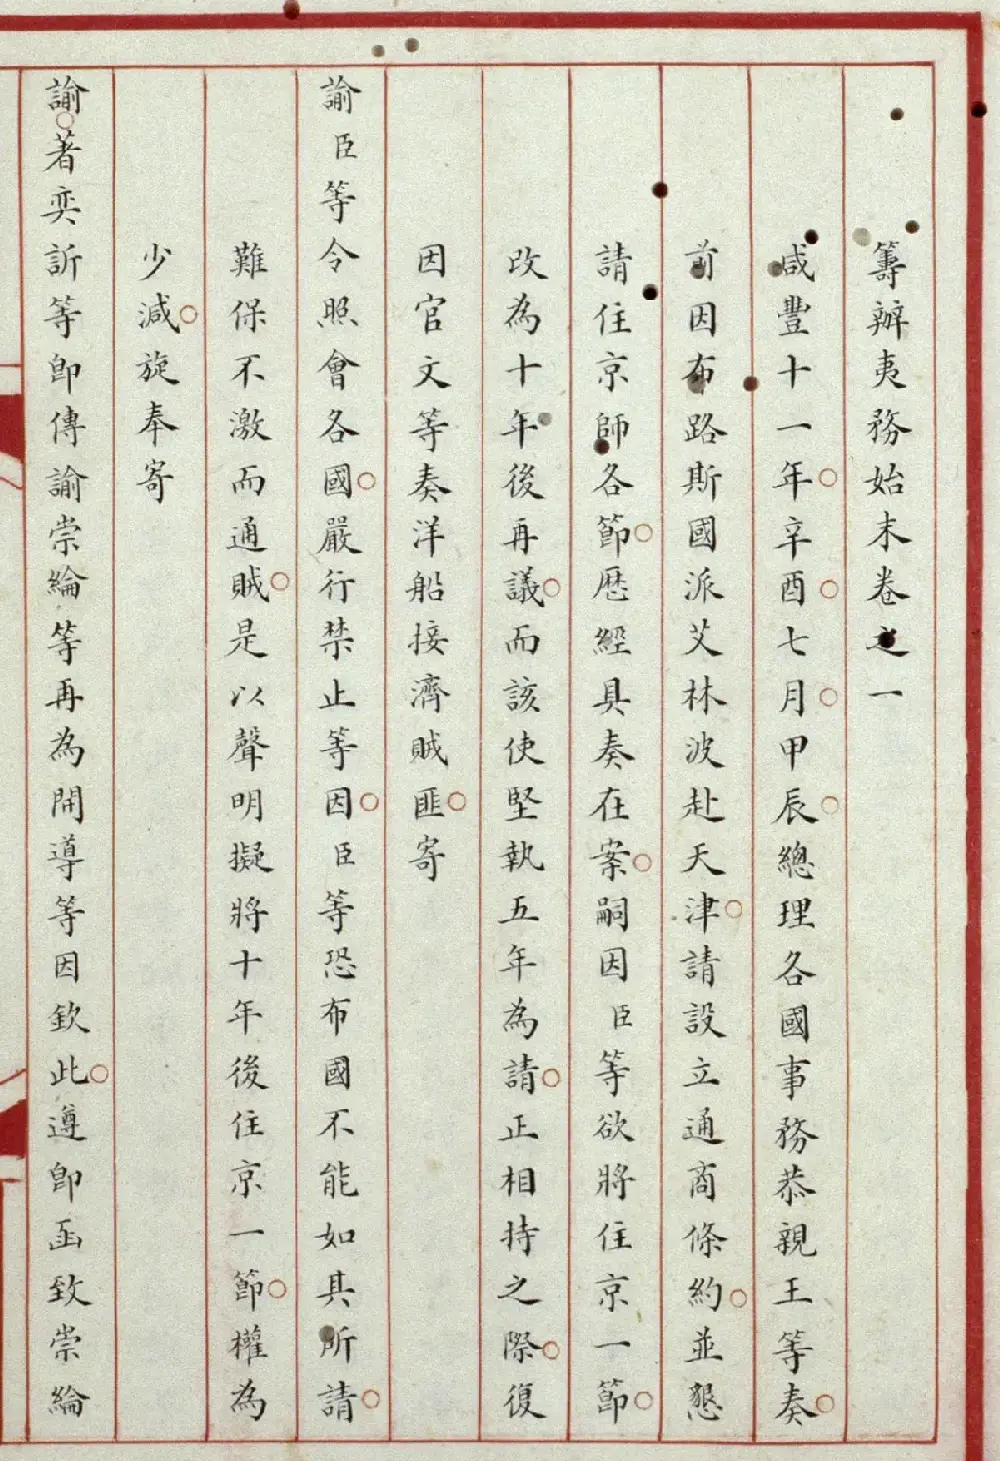 籌辦夷務始末卷之一
咸豐十一年辛酉七月甲辰總理各國事務恭親王等奏
前因布路斯國派艾林波赴天津請設立通商條約並懇
請住京師各節歷經具奏在案嗣因臣等欲將住京一節
改為十年後再議而該使堅執五年為請正相持之際復
因官文等奏洋船接濟賊匪寄
諭臣等令照會各國嚴行禁止等因臣等恐布國不能如其所請
難保不激而通賊是以聲明擬將十年後住京一節權為
少減旋奉寄
諭著奕訢等卽傳諭崇綸等再為開導等因欽此遵卽函致崇綸